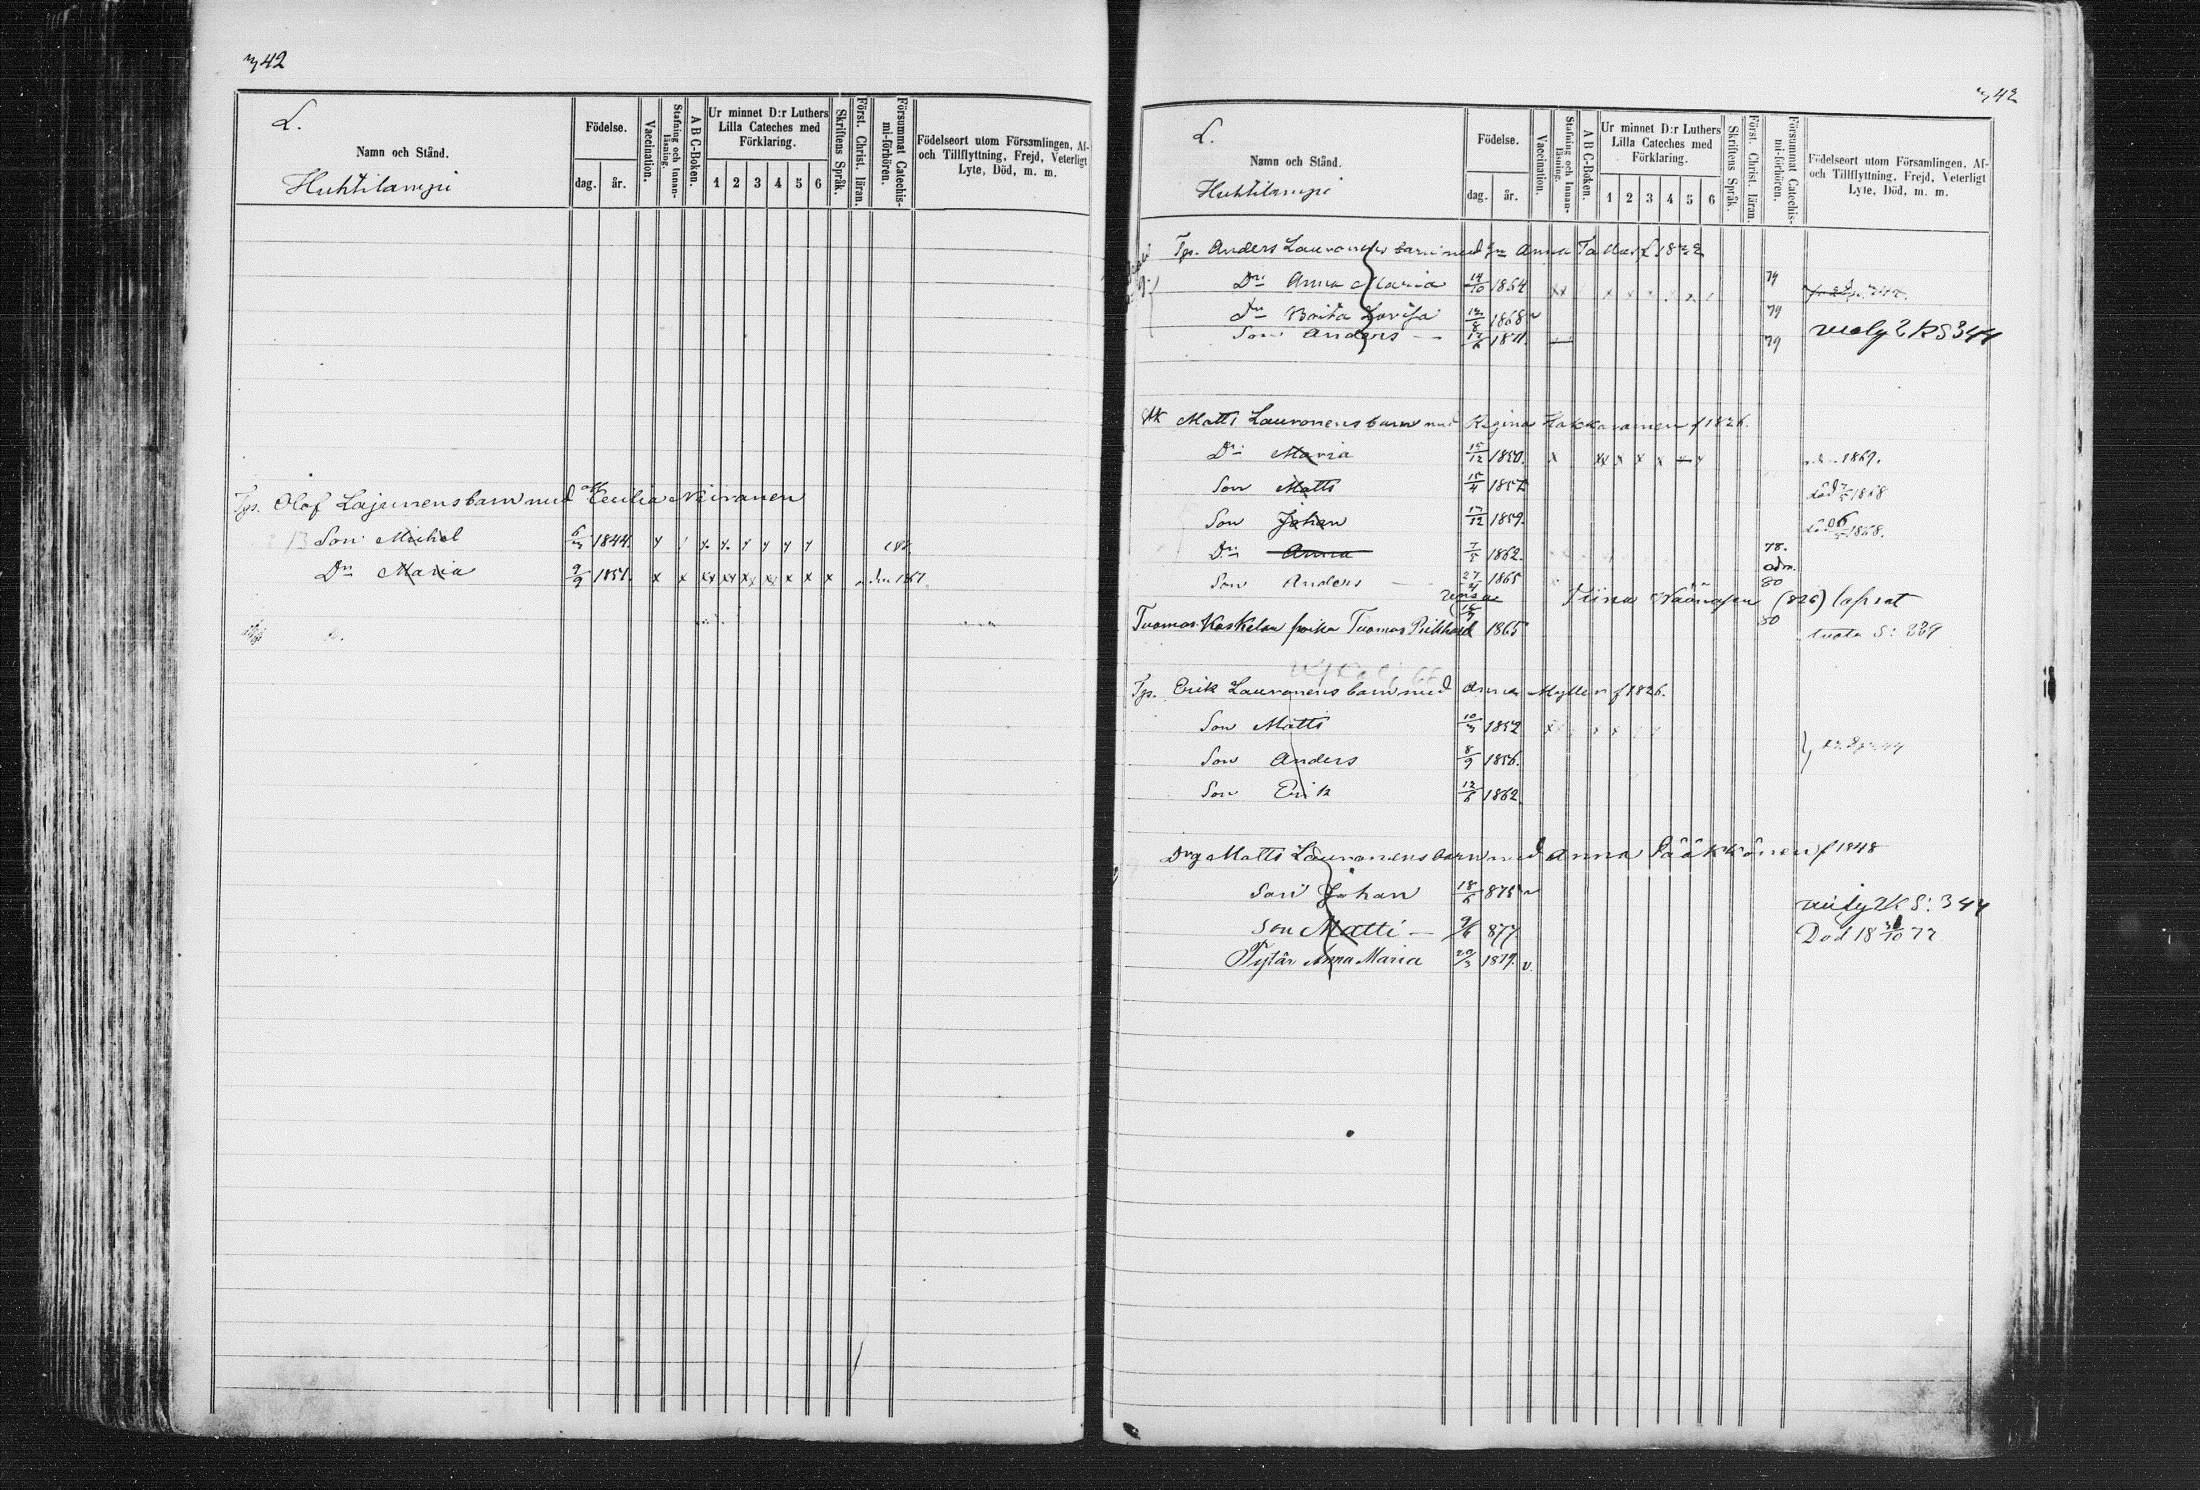 342
L.
Namn och Stånd.
Huhtilampi
Födelse.
dag. år.
Vaccination.
Stafning och Innan-läsning.
A B C-Boken.
Ur minnet D:r Luthers Lilla Cateches med Förklaring.
1 2 3 4 5 6
Skriftens Språk.
Först. Christ. läran.
Försummat Catechis-mi-förhören.
Födelseort utom Församlingen, Af- och Tillflyttning, Frejd, Veterligt Lyte, Död, m. m.
Tps. Olof Lajunens barn med Cecilia Neivanen
Son Michel 6/3 1844.
Dr Maria 9/9 1851. 1867.
342
L.
Namn och Stånd.
Huhtilampi
Födelse.
dag. år.
Vaccination.
Stafning och Innan-läsning.
A B C-Boken.
Ur minnet D:r Luthers Lilla Cateches med Förklaring.
1 2 3 4 5 6
Skriftens Språk.
Först. Christ. läran.
Försummat Catechis-mi-förhören.
Födelseort utom Församlingen, Af- och Tillflyttning, Frejd, Veterligt Lyte, Död, m. m.
Tps. Anders Lauronens barn med Anna
Dr Anna Maria 14/10 1864 79
Dr Brita Lovisa 1868 v 79
Son Anders 1871. 79 2 K S 344
Matts Lauronens barn med Regina Kakkaranen f 1826.
Dr Maria 15/12 1850. 1869.
Son Matts 15/4 1857 död 1868
Son Johan 17/12 1859. död 1868.
Dr Anna 7/5 1862. 78. adm.
Son Anders 27/4 1865 80
Tiina Väänäsen (826) lapset
Tuomas Koskelan poika Tuomas Rikhard 1865 80 S: 339
Tps. Erik Lauronens barn med Anna Myller f 1826.
Son Matts 10/3 1852
Son Anders 8/9 1856.
Son Erik 12/6 1862
Drg Matts Lauronens barn med Anna Pääkkönen f 1848
Son Johan 18/6 875 v 2K S: 344
Son Matti 9/6 877. Död 18 /10 77
Tytär Anna Maria 20/3 1879. v.